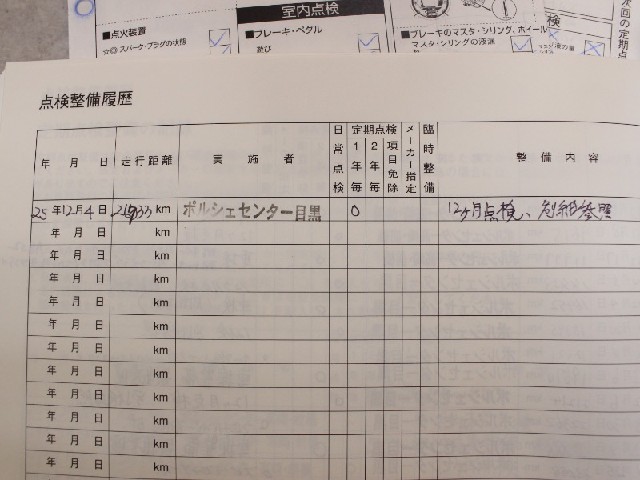 室内点検
■点火装置
■ブレーキ・ペダル
■ブレーキのマスタ・シリンダ、ホイール
☆◎ スパーク・プラグの状態
マスタ・シリンダの液漏
次回の定期点
点検整備履歴
年 月 日 走行距離 実施者 日常点検 定期点検 1年毎 2年毎 項目免除 メーカー指定 臨時整備 整備内容
25年12月4日 km ポルシェセンター目黒 O 12ヶ月点検、
年 月 日 km
年 月 日 km
年 月 日 km
年 月 日 km
年 月 日 km
年 月 日 km
年 月 日 km
年 月 日 km
年 月 日 km
年 月 日 km
年 月 日 km